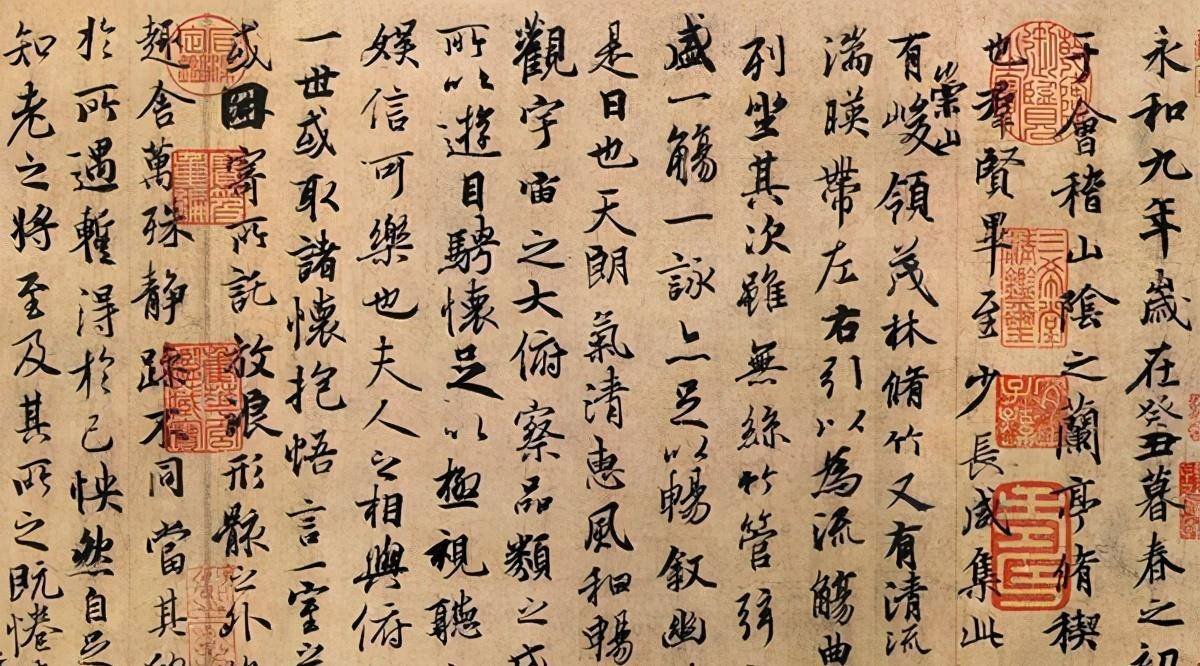 永和九年歲在癸丑暮春之初
于會稽山陰之蘭亭脩稧
也羣賢畢至少長咸集此
有崇山峻領茂林脩竹又有清流
湍暎帶左右引以為流觴曲
列坐其次雖無絲竹管弦
盛一觴一詠亦足以暢敘幽
是日也天朗氣清惠風和暢
觀宇宙之大俯察品類之
所以遊目騁懷足以極視聽
娛信可樂也夫人之相與俯
一世或取諸懷抱悟言一室之
或因寄所託放浪形骸之外
趣舍萬殊静躁不同當其
於所遇暫得於己怏然自足
知老之將至及其所之既惓
三希堂精鑑璽
宜子孫